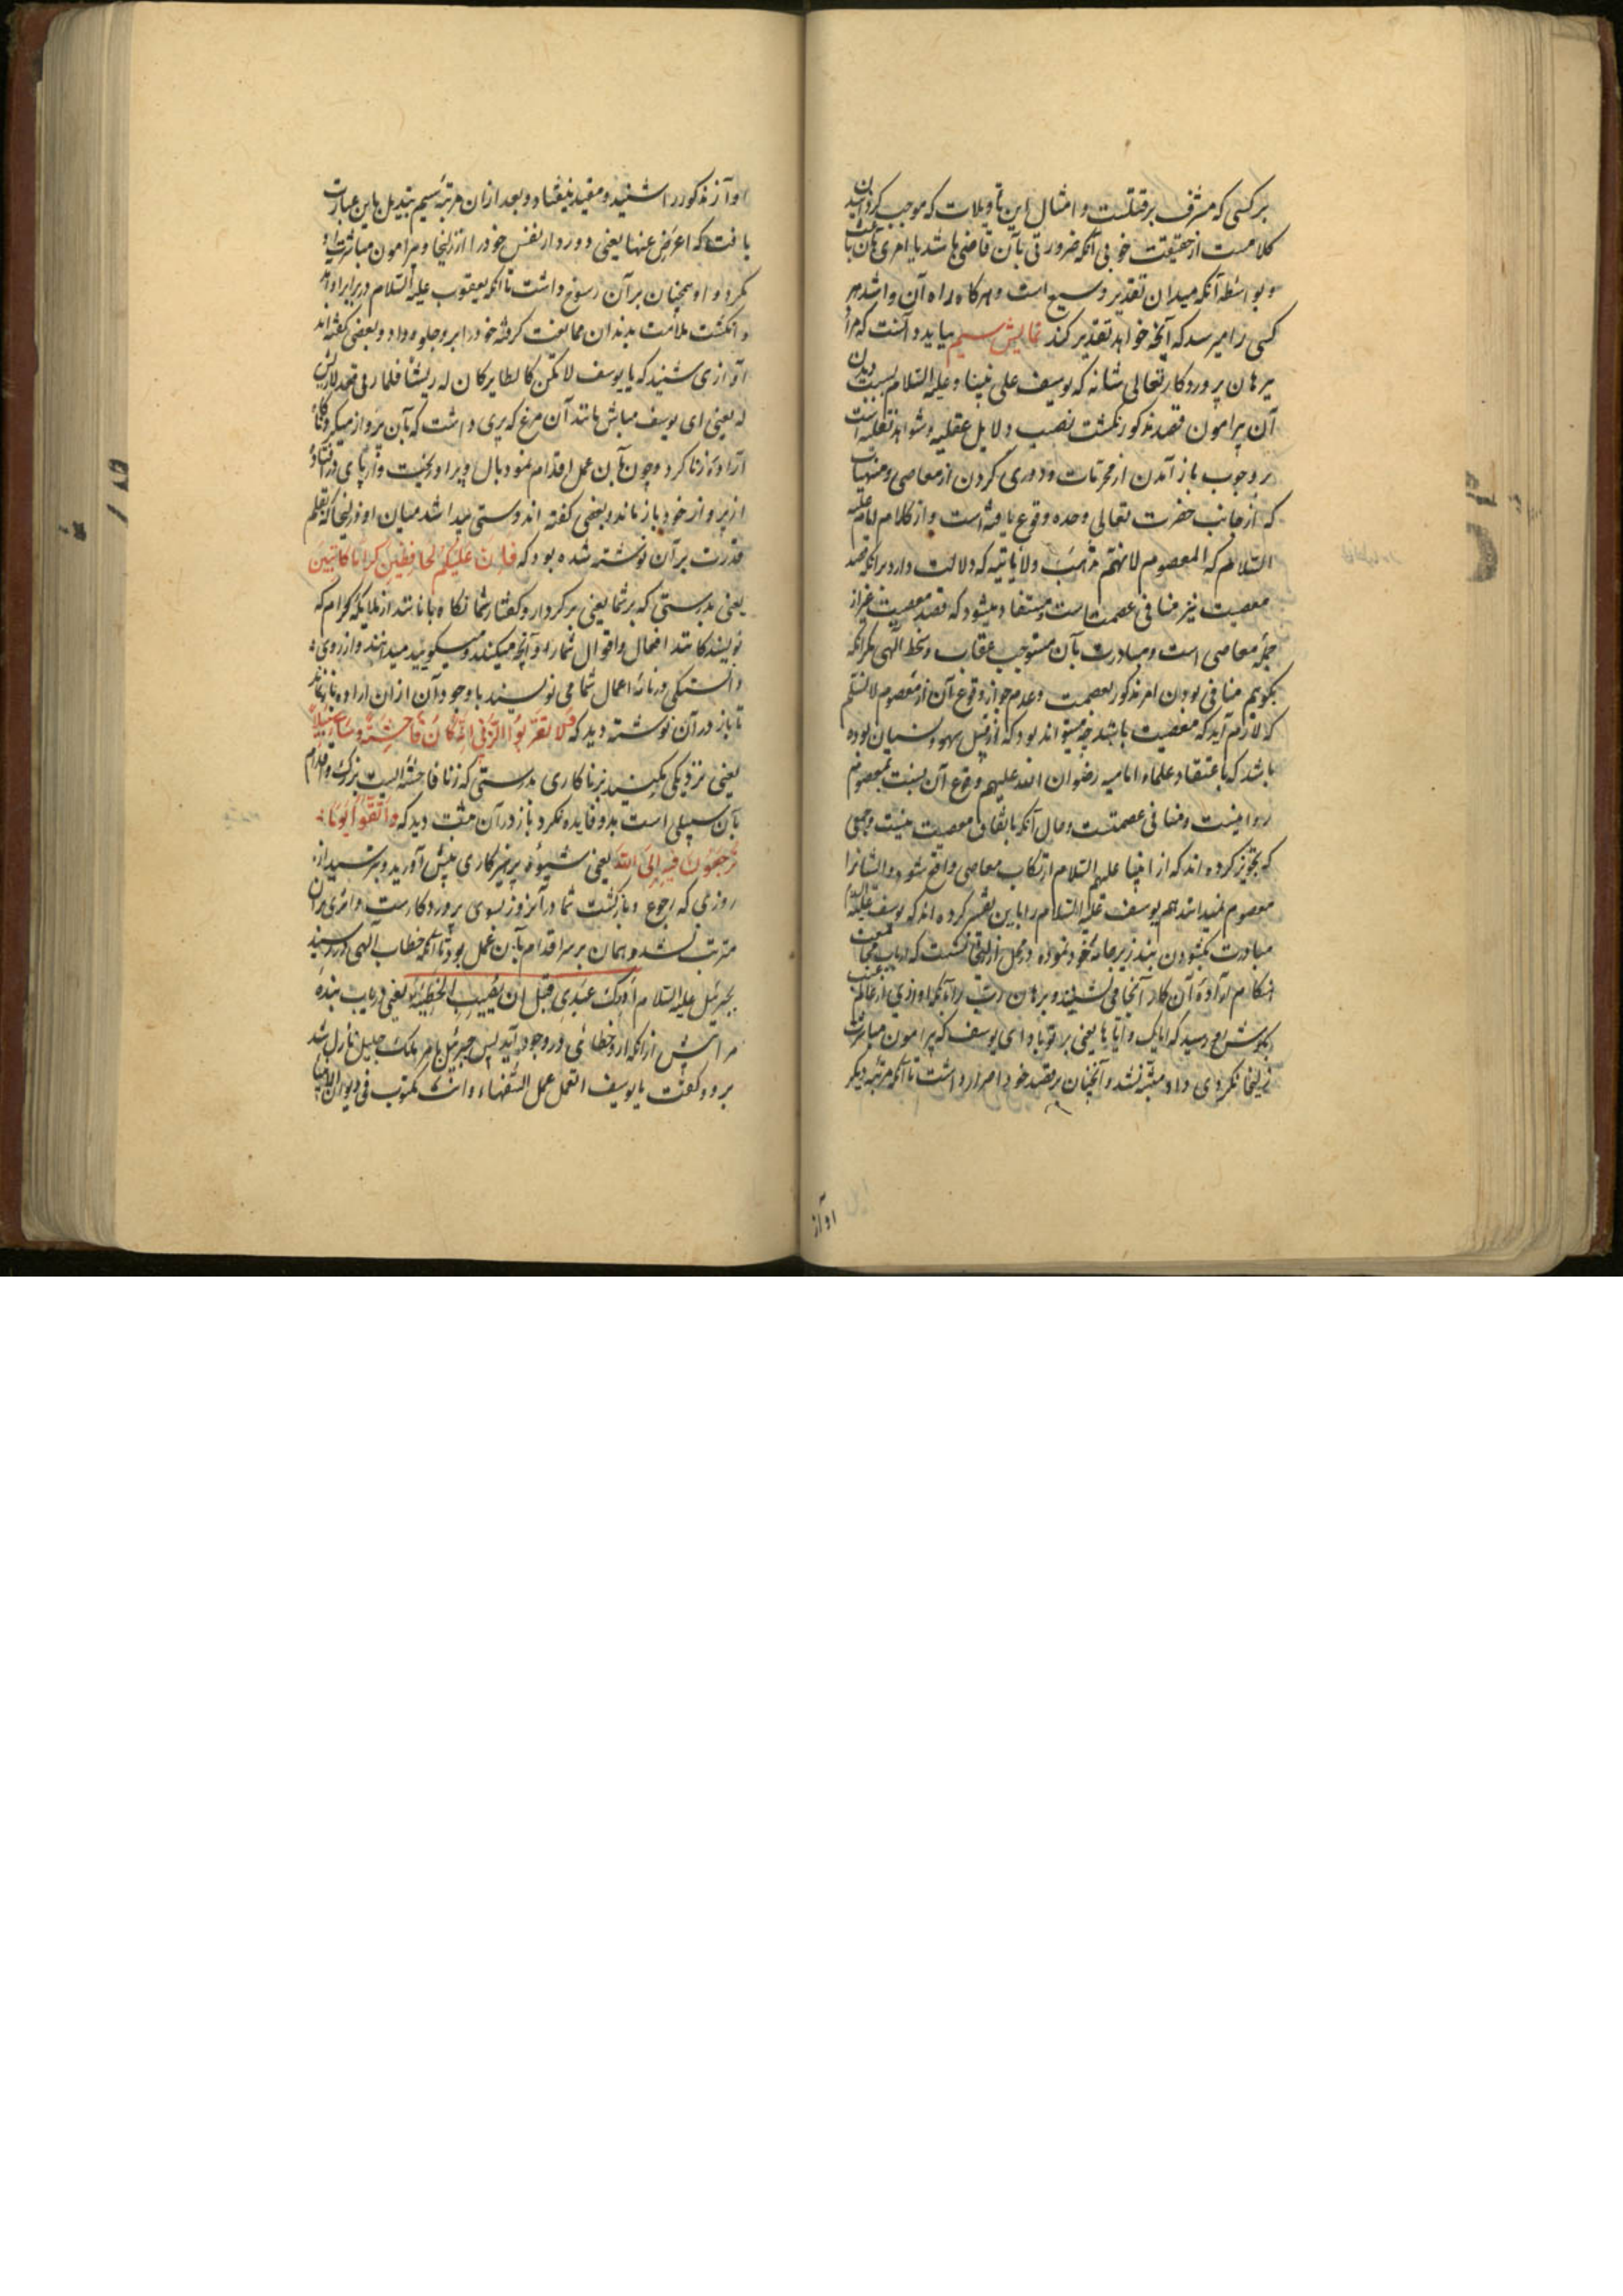 بر کسی که مشرف بر قتلست و امثال این تاویلات که موجب کردانیدن
کلامست از حقیقت خوبی آنکه ضرورتی بآن قاضی باشد یا امری بآن
و بواسطه آنکه میدان تقدیر وسیع است و هرکاه راه آن وا شد هر
کسی را میرسد که آنچه خواهد تقدیر کند نمایش سیم بیاید دانست که مراد
برهان پروردکار تعالی شانه که یوسف علی نبینا و علیه السلام بسبب دیدن
آن پیرامون قصد مذکور نکشت نصب دلایل عقلیه و شواهد نقلیه است
بر وجوب باز آمدن از محرمات و دوری کردن از معاصی و منهیات
که از جانب حضرت تعالی وحده وقوع یافته است و از کلام امام علیه
السلام که المعصوم لا یهتم بذنب ولا یاتیه که دلالت دارد برانکه قصد
معصیت نیز منافی عصمت است مستفاد میشود که قصد معصیت نیز از
جمله معاصی است و مبادرت بآن مستوجب عقاب و سخط الهی مکر آنکه
بکویم منافی بودن امر مذکور بعصمت و عدم جواز وقوع آن از معصوم لا نسلم
که لازم آید که معصیت باشد چه میتواند بود که از قبیل سهو و نسیان بوده
باشد که باعتقاد علماء امامیه رضوان الله علیهم وقوع آن بنسبت بمعصوم
روا نیست و منافی عصمتست و حال آنکه باتفاق معصیت نیست و جمعی
که تجویز کرده اند که از انبیا علیهم السلام ارتکاب معاصی واقع شود و ایشانرا
معصوم نمیدانند هم یوسف علیه السلام را باین تفسیر کرده اند که یوسف علیه السلام
مبادرت بکشودن بند زیر جامه خود نموده در محل از زلیخا نشست که ارباب مجامعت
هنکام اراده آن کار آنجا می نشینند و برهان رب را بآنکه اوازی از عالم غیب
بکوش وی رسید که ایاک و ایاها یعنی بر تو باد ای یوسف که پیرامون مباشرت
زلیخا نکردی داد متنبه نشد و آنچنان بر قصد خود اصرار داشت تا آنکه مرتبه دیکر
اواز
اواز مذکور را شنید و مفید نیفتاد و بعد از ان مرتبه سیم تبدیل باین عبارت
یافت که اعرض عنها یعنی دور دار نفس خود را از زلیخا و پیرامون مباشرت او
مکرد و او همچنان بر آن رسوخ داشت تا آنکه یعقوب علیه السلام در برابر او آمد
و انکشت ملامت بدندان ممانعت کرفته خود را بر او جلوه داد و بعضی کفته اند
اوازی شنید که یا یوسف لا تکن کالطایر کان له ریش فلما زنی قعد لا ریش
له یعنی ای یوسف مباش مانند آن مرغ که پری داشت که بآن پرواز میکرد و کاه
اراده زنا کرد و چون بآن عمل اقدام نمود بال و پر او ریخت و از پای در افتاد و
از پرواز خود باز ماند و بعضی کفته اند دستی پیدا شد میان او و زلیخا که بقلم
قدرت بر آن نوشته شده بود که فَاِنَّ عَلَیْکُمْ لَحافِظینَ کِرامًا کاتِبینَ
یعنی بدرستی که بر شما یعنی بر کردار و کفتار شما نکاه بانانند از ملایکه کرام که
نویسندکانند افعال و اقوال شما را و آنچه میکنید و میکویید میدانند و از روی
دانستکی در نامه اعمال شما می نویسند با وجود آن از ان اراده باز نماند
تا باز در آن نوشته دید که فَلا تَقْرَبُوا الزِّنی اِنَّهُ کانَ فاحِشَةً وَ ساءَ سَبیلًا
یعنی نزدیکی مکنید بزنا کاری بدرستی که زنا فاحشه ایست بزرک و اقدام
بآن سبیلی است بد و فایده نکرد باز در آن مشت دید که وَاتَّقُوا یَوْمًا
تُرْجَعُونَ فیهِ اِلَی اللهِ یعنی شیوه پرهیزکاری پیش آورید و بترسید از
روزی که رجوع و بازکشت شما در آنروز بسوی پروردکارست و اثری بر آن
مترتب نشد و همان بر سر اقدام بآن عمل بود تا آنکه خطاب الهی در رسید
بجبرئیل علیه السلام اَدْرِکْ عَبْدی قَبْلَ اَنْ یُصیبَ الْخَطیئَةَ یعنی دریاب بنده
مرا پیش از آنکه ازو خطائی در وجود آید پس جبرئیل بامر ملک جلیل نازل شد
بر وی و کفت یا یوسف اتعمل عمل السفهاء و انت مکتوب فی دیوان الانبیا